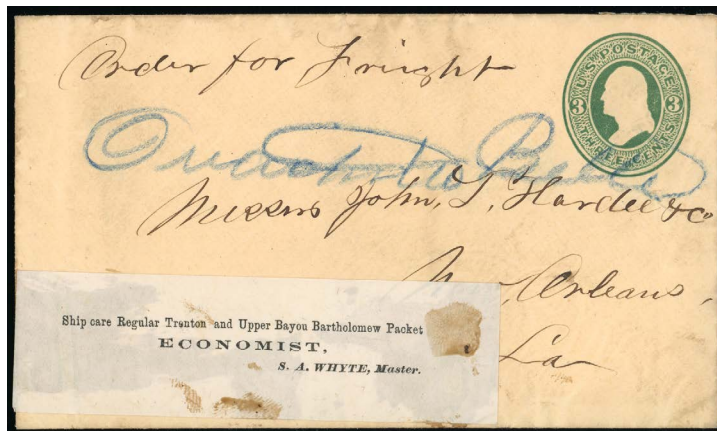 Order for Freight
U.S. POSTAGE
3 3
THREE CENTS
Ouachita
Messrs John, T, Hardee & Co
N, Orleans,
La
Ship care Regular Trenton and Upper Bayou Bartholomew Packet
ECONOMIST,
S. A. WHYTE, Master.